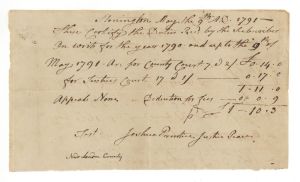 Stonington May the 9th A.D. 1791 –
These Certifies the Duties Paid by the Subscriber
On writs for the year 1790 and up to the 9th of
May 1791 Ar. for County Court 7 d 2/ £0..14..0
for Justices Court 17 d 1/ — 0..17..0
1..11..0
Appeals None – Deduction for fees — 0..0..9
£1..10..3
Test Joshua Prentice Justice Peace
New London County